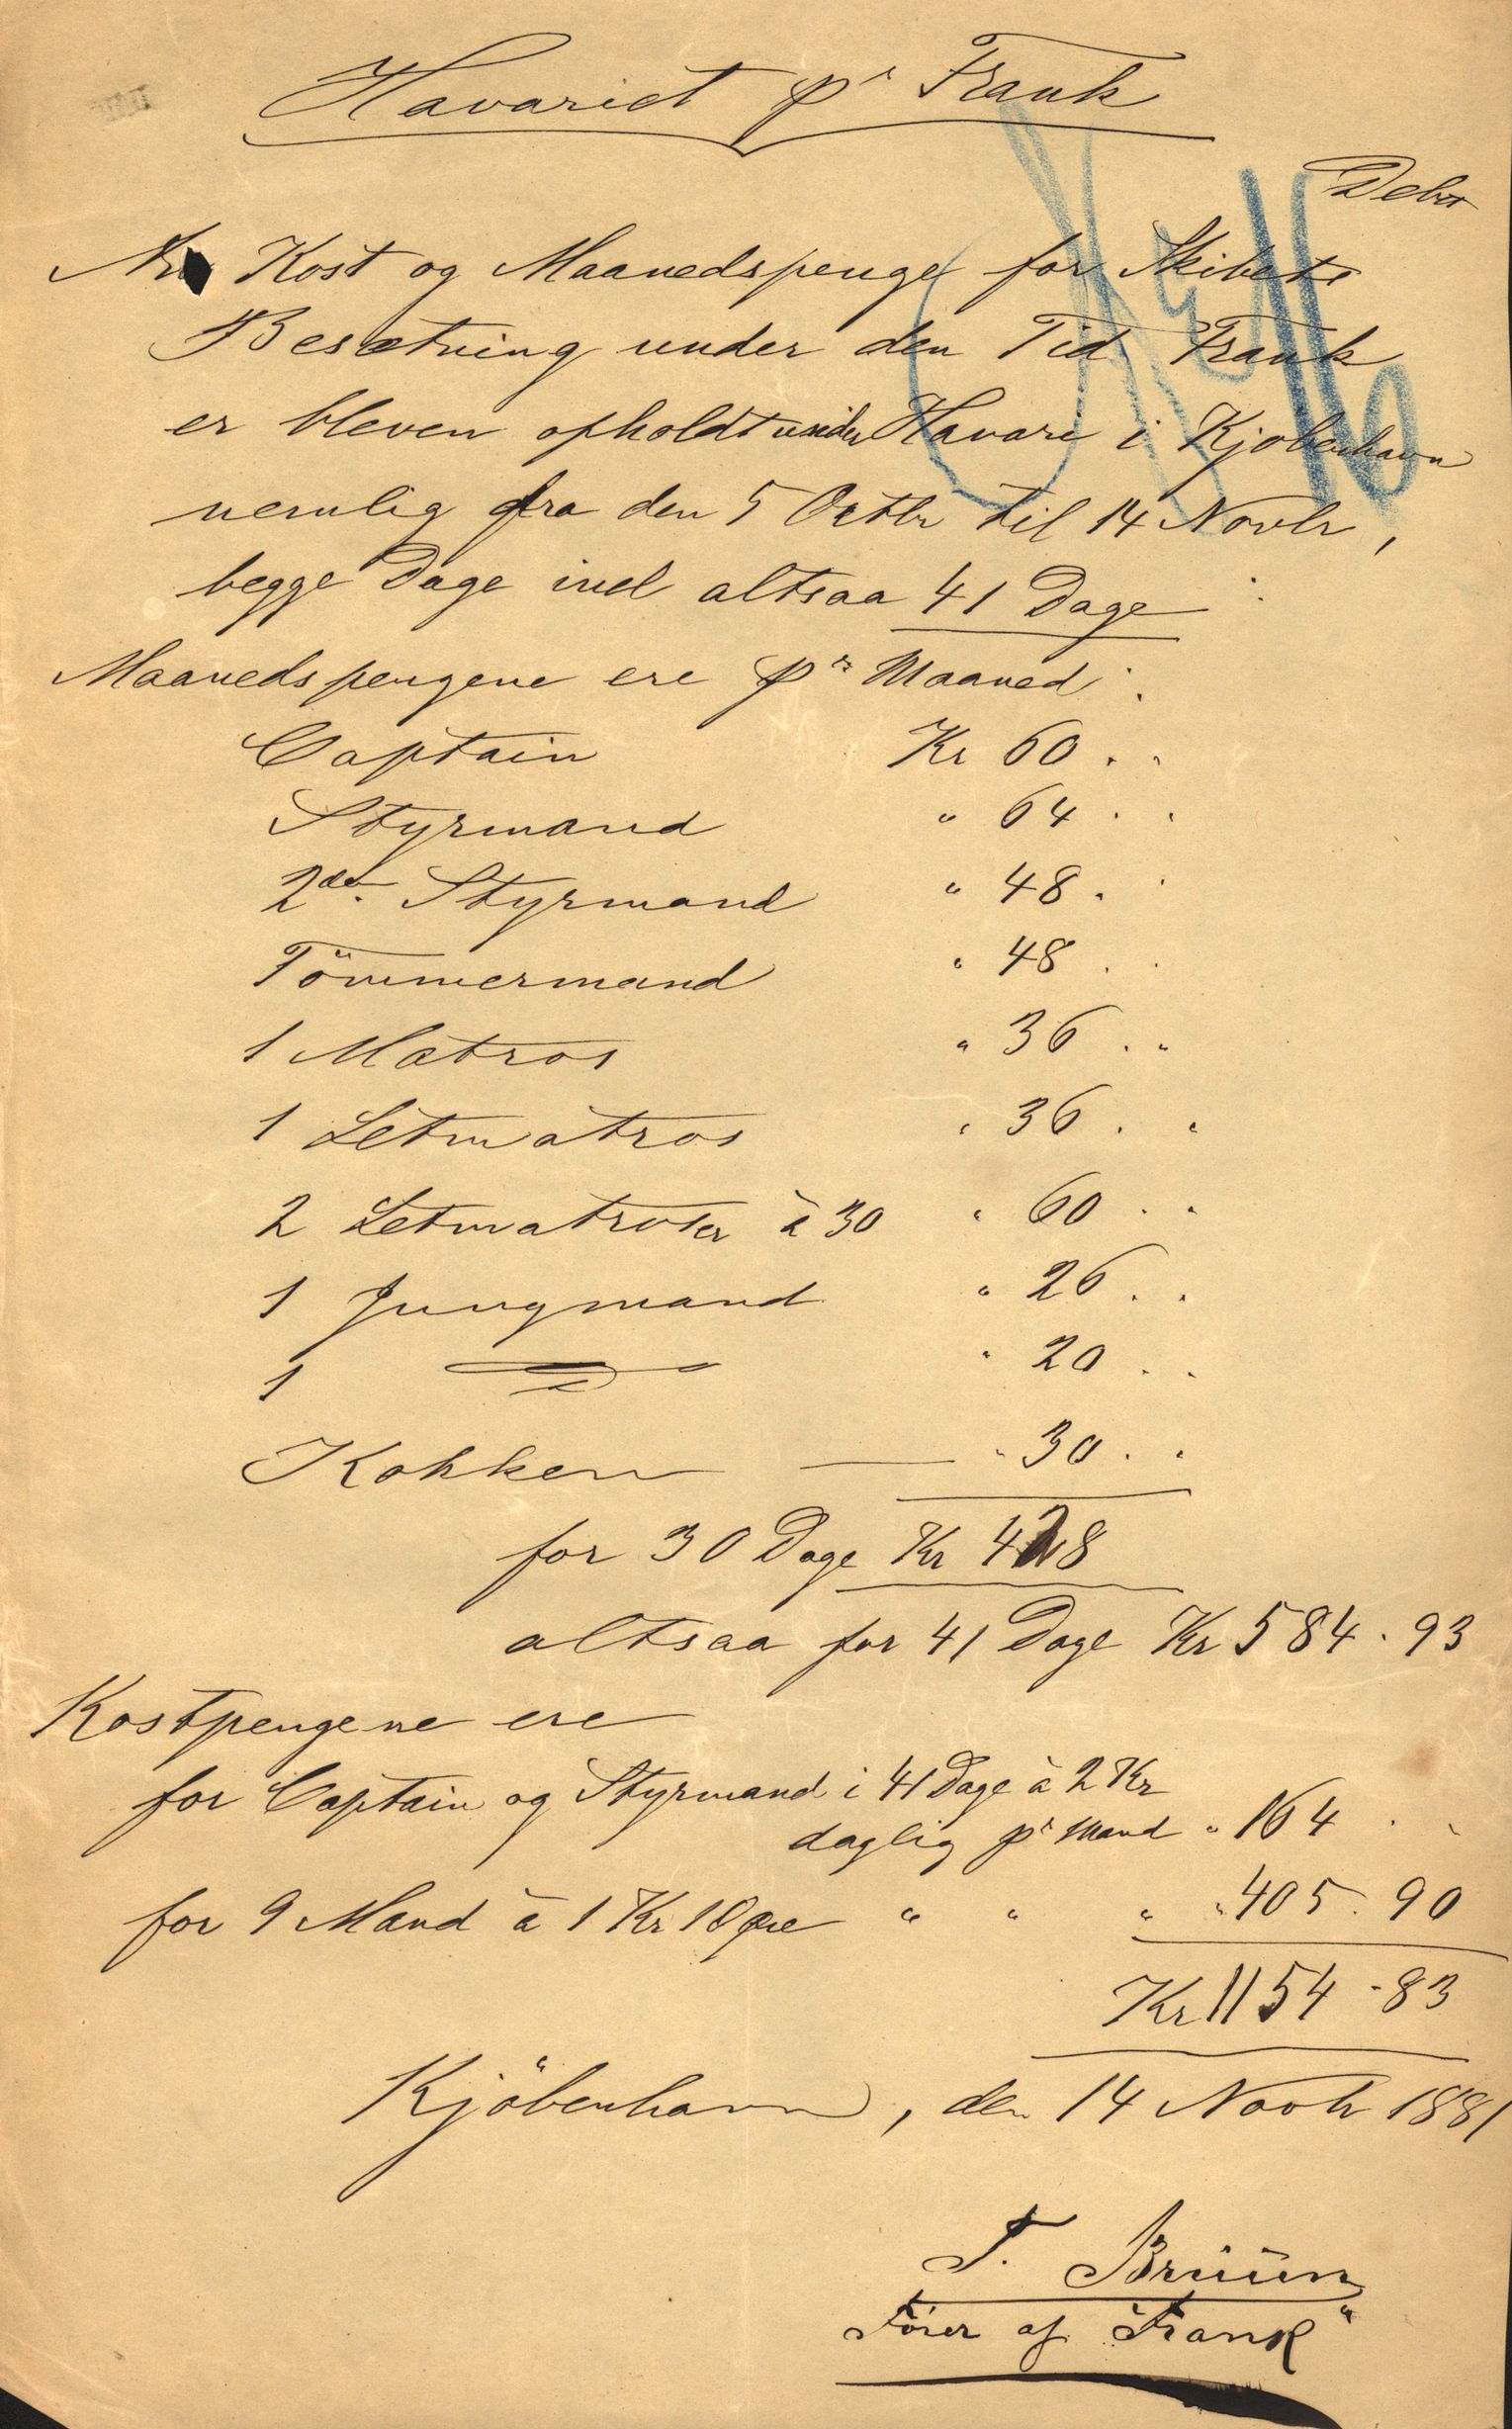 Havariet pr Frank
Debet
Kost og Maanedspenge for Skibets
Besætning under den Tid Frank
er bleven opholdt under Havari i Kjobenhavn
nemlig fra den 5 Octbr til 14 Novbr,
begge Dage incl altsaa 41 Dage :
Maanedspengene ere pr Maaned :
Captain Kr 60 . .
Styrmand " 64 . .
2den Styrmand " 48 . .
Tömmermand " 48 . .
1 Matros " 36 . .
1 Letmatros " 36 . .
2 Letmatroser à 30 " 60 . .
1 Jungmand " 26 . .
1 — " — " 20 . .
Kokken — " 30 . .
for 30 Dage Kr 428
altsaa for 41 Dage Kr 584 . 93
Kostpengene ere
for Captain og Styrmand i 41 Dage à 2 Kr
daglig pr Mand " 164 . .
for 9 Mand à 1 Kr 10 Øre " " " " 405 . 90
Kr 1154 - 83
Kjöbenhavn, den 14 Novbr 1881
T. Bruün
Förer af "Frank"